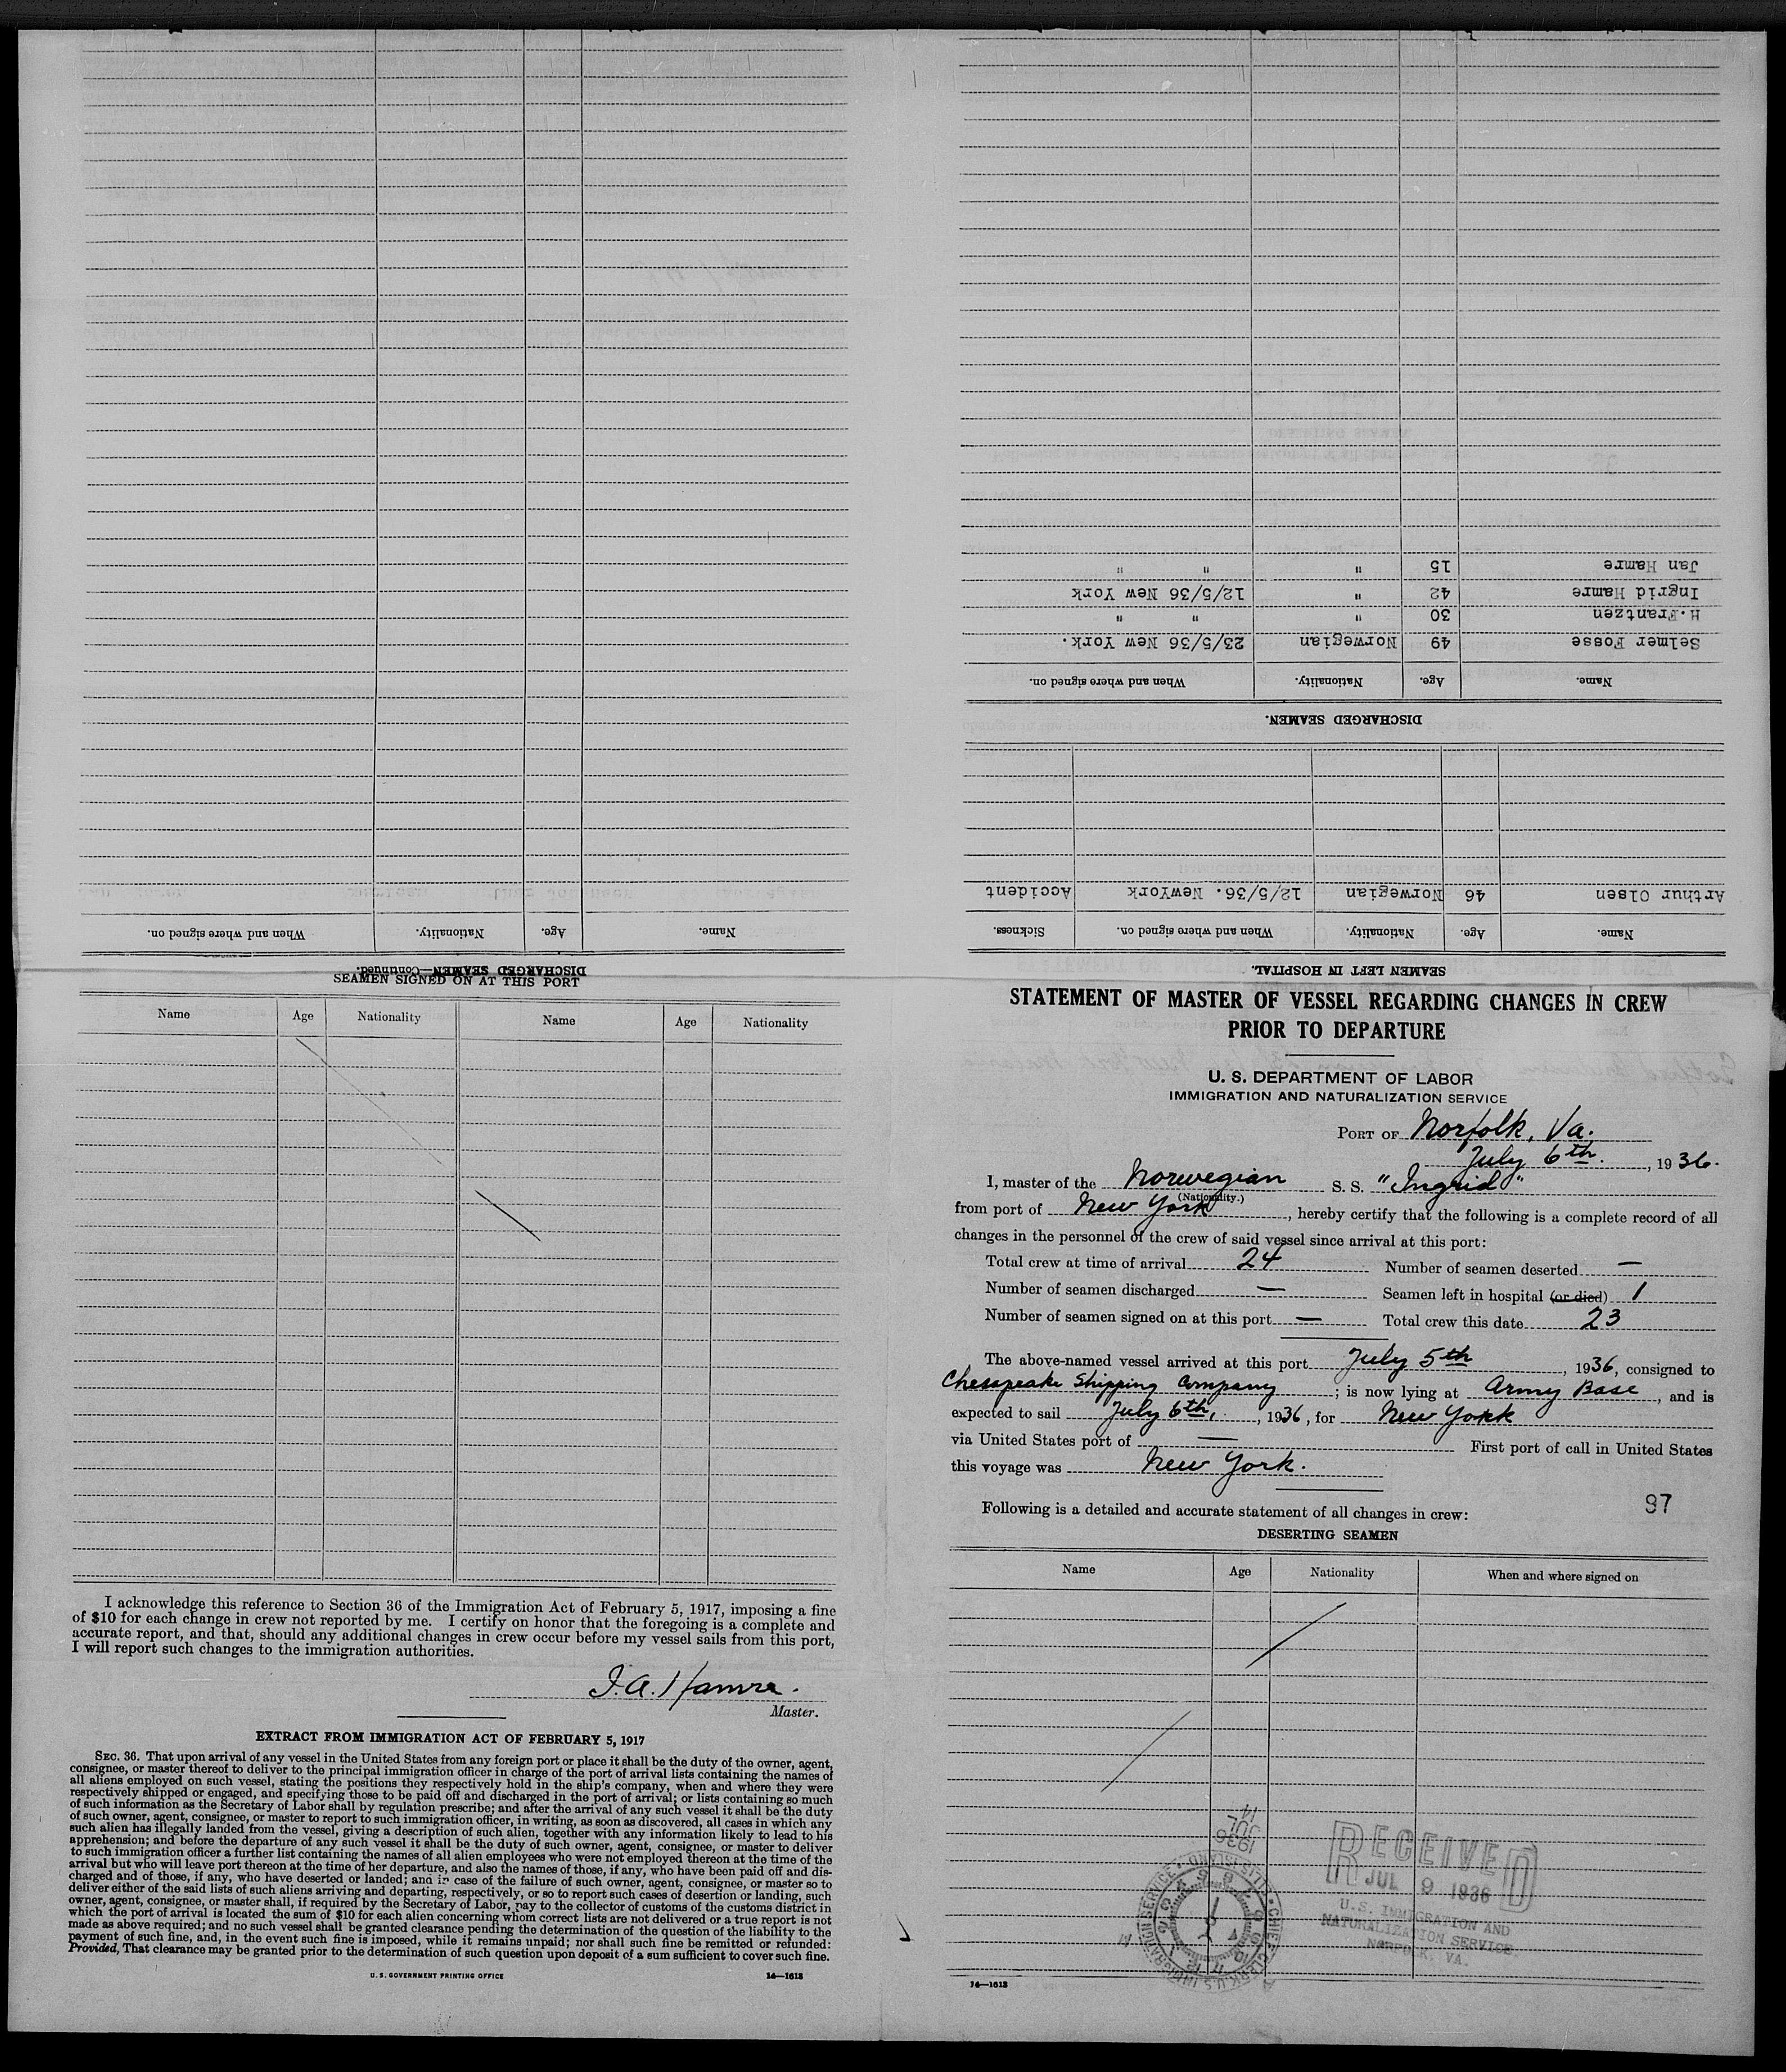 STATEMENT OF MASTER OF VESSEL REGARDING CHANGES IN CREW
PRIOR TO DEPARTURE
U. S. DEPARTMENT OF LABOR
IMMIGRATION AND NATURALIZATION SERVICE
PORT OF Norfolk, Va.
July 6th. , 1936.
I, master of the Norwegian S. S. "Ingrid"
(Nationality.)
from port of New York , hereby certify that the following is a complete record of all
changes in the personnel of the crew of said vessel since arrival at this port:
Total crew at time of arrival 24 Number of seamen deserted —
Number of seamen discharged — Seamen left in hospital (or died) 1
Number of seamen signed on at this port — Total crew this date 23
The above-named vessel arrived at this port July 5th , 1936, consigned to
Chesapeake Shipping Company ; is now lying at Army Base , and is
expected to sail July 6th, , 1936, for New York
via United States port of — First port of call in United States
this voyage was New York.
Following is a detailed and accurate statement of all changes in crew:
97
DESERTING SEAMEN
Name Age Nationality When and where signed on
JUL
1936
RECEIVED
JUL 9 1936
U.S. IMMIGRATION AND
NATURALIZATION SERVICE.
NORFOLK, VA.
14—1613
SEAMEN LEFT IN HOSPITAL.
Name. Age. Nationality. When and where signed on. Sickness.
Arthur Olsen 46 Norwegian 12/5/36. NewYork Accident
DISCHARGED SEAMEN.
Name. Age. Nationality. When and where signed on.
Selmer Fosse 49 Norwegian 23/5/36 New York.
H.Frantzen 30 " " "
Ingrid Hamre 42 " 12/5/36 New York
Jan Hamre 15 " " "
DISCHARGED SEAMEN—Continued.
Name. Age. Nationality. When and where signed on.
SEAMEN SIGNED ON AT THIS PORT
Name Age Nationality Name Age Nationality
I acknowledge this reference to Section 36 of the Immigration Act of February 5, 1917, imposing a fine
of $10 for each change in crew not reported by me. I certify on honor that the foregoing is a complete and
accurate report, and that, should any additional changes in crew occur before my vessel sails from this port,
I will report such changes to the immigration authorities.
J.A. Hamre.
Master.
EXTRACT FROM IMMIGRATION ACT OF FEBRUARY 5, 1917
SEC. 36. That upon arrival of any vessel in the United States from any foreign port or place it shall be the duty of the owner, agent,
consignee, or master thereof to deliver to the principal immigration officer in charge of the port of arrival lists containing the names of
all aliens employed on such vessel, stating the positions they respectively hold in the ship's company, when and where they were
respectively shipped or engaged, and specifying those to be paid off and discharged in the port of arrival; or lists containing so much
of such information as the Secretary of Labor shall by regulation prescribe; and after the arrival of any such vessel it shall be the duty
of such owner, agent, consignee, or master to report to such immigration officer, in writing, as soon as discovered, all cases in which any
such alien has illegally landed from the vessel, giving a description of such alien, together with any information likely to lead to his
apprehension; and before the departure of any such vessel it shall be the duty of such owner, agent, consignee, or master to deliver
to such immigration officer a further list containing the names of all alien employees who were not employed thereon at the time of the
arrival but who will leave port thereon at the time of her departure, and also the names of those, if any, who have been paid off and dis-
charged and of those, if any, who have deserted or landed; and in case of the failure of such owner, agent, consignee, or master so to
deliver either of the said lists of such aliens arriving and departing, respectively, or so to report such cases of desertion or landing, such
owner, agent, consignee, or master shall, if required by the Secretary of Labor, pay to the collector of customs of the customs district in
which the port of arrival is located the sum of $10 for each alien concerning whom correct lists are not delivered or a true report is not
made as above required; and no such vessel shall be granted clearance pending the determination of the question of the liability to the
payment of such fine, and, in the event such fine is imposed, while it remains unpaid; nor shall such fine be remitted or refunded:
Provided, That clearance may be granted prior to the determination of such question upon deposit of a sum sufficient to cover such fine.
U. S. GOVERNMENT PRINTING OFFICE 14—1613